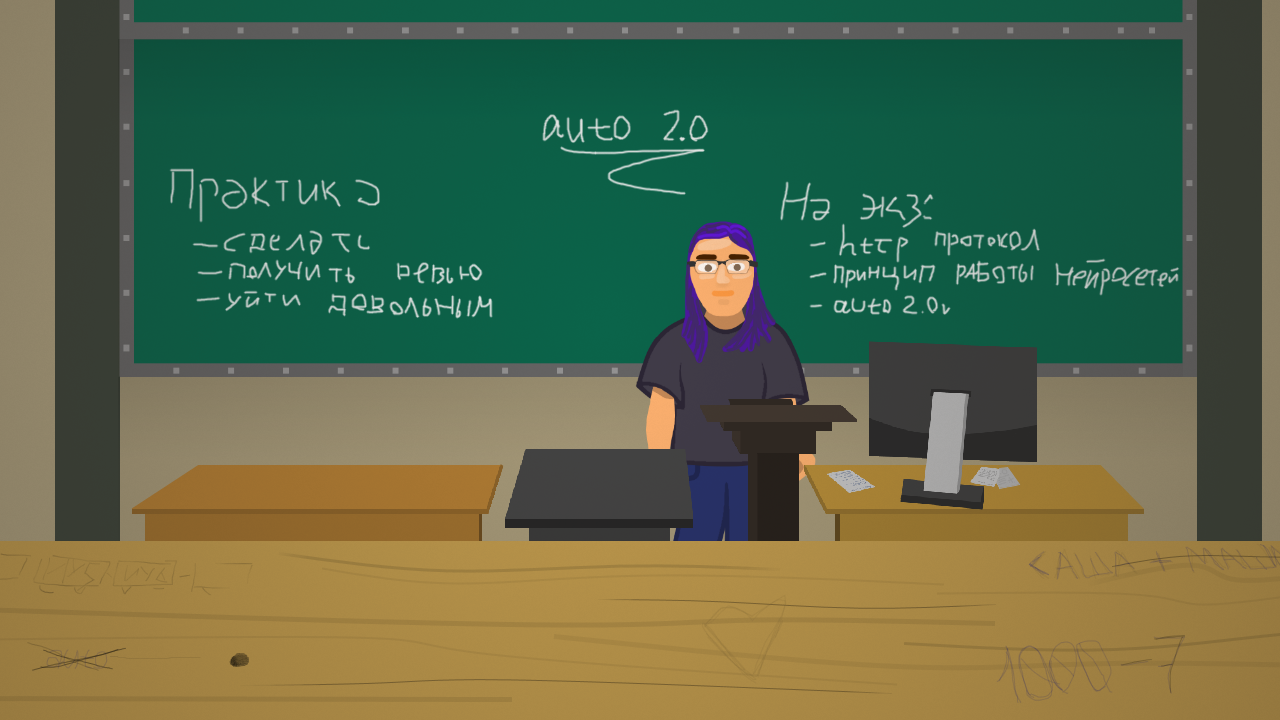 auto 2.0
Практика
- сделать
- получить ревью
- уйти довольным
На экз:
- http протокол
- принцип работы нейросетей
- auto 2.0
САША + МАША
1000-7